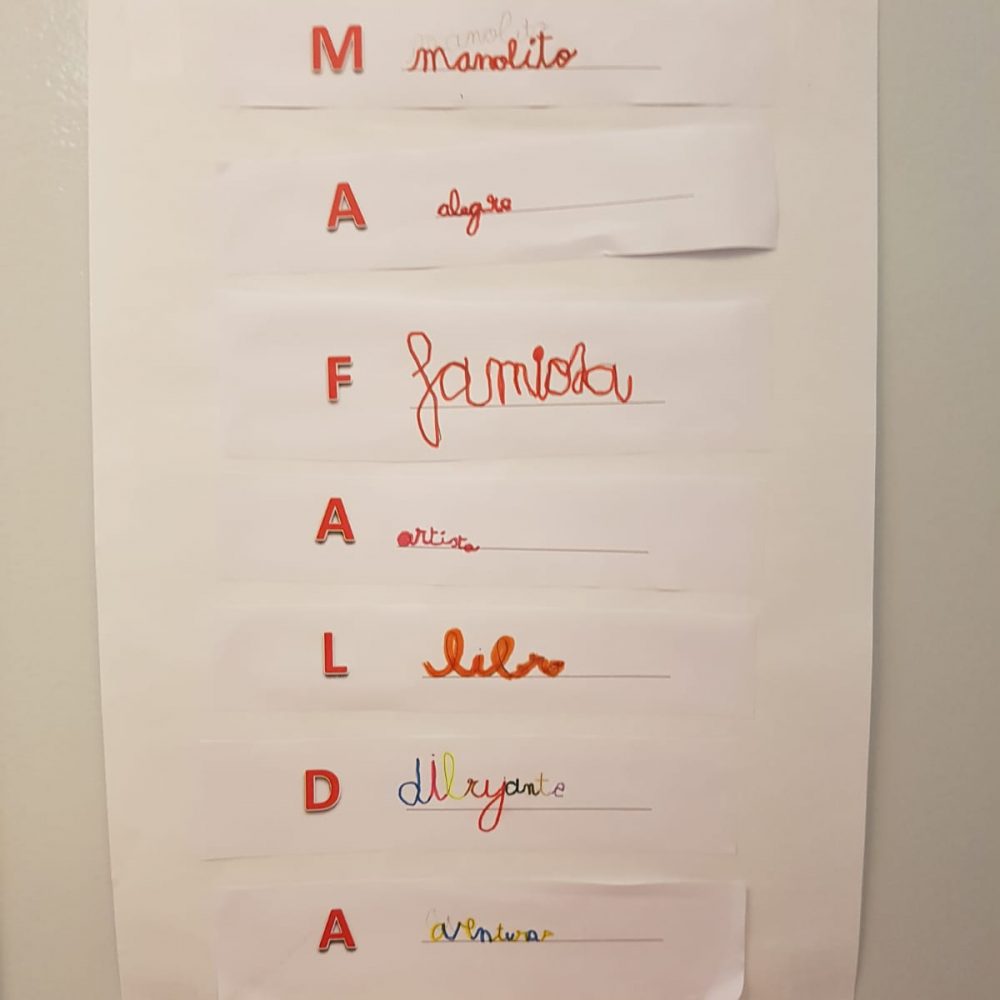 M manolito
A alegre
F famiosa
A artista
L libro
D dilryante
A aventura